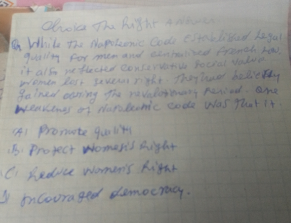 Choose The Right Answer
Q While The Napoleonic Code established legal
quality For men and centralized French law
it also reflected conservative social values
women lost several right They had
gained during the revolutionary Period. one
weakness of Napoleonic code was that it.
A) Promote quality
B) Protect Women's Right
C) Reduce women's Right
D) encouraged democracy.